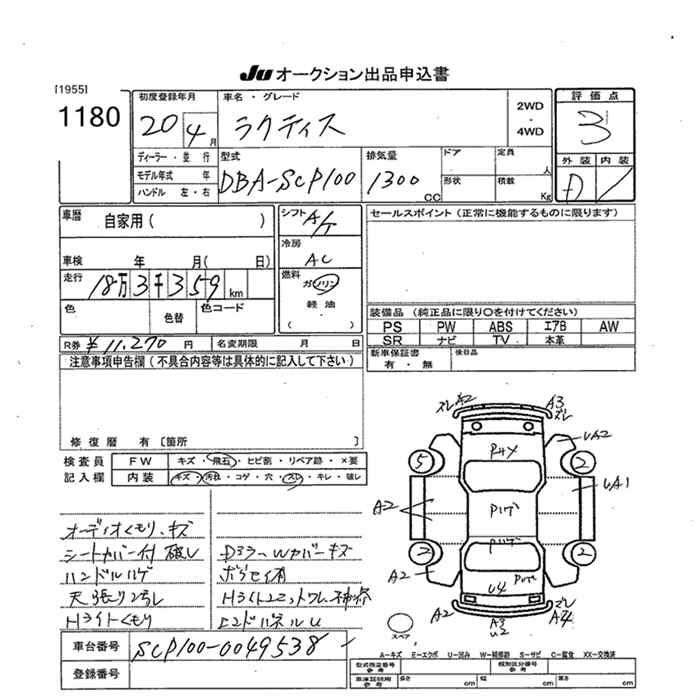 Ju オークション出品申込書
[1955]
1180
初度登録年月
20 4月
車名・グレード
ラクティス
2WD
・
4WD
評価点
3
外装 内装
D
ディーラー・並行
モデル年式 年
ハンドル 左・右
型式
DBA-SCP100
排気量
1300 CC
ドア
形状
定員 人
積載 Kg
車歴 自家用( )
シフト A/T
冷房
AC
セールスポイント(正常に機能するものに限ります)
車検 年 月( 日)
走行 18万3千359km
燃料
ガソリン
・
軽油
( )
色 色替 色コード
装備品(純正品に限り○を付けてください)
PS PW ABS エアB AW
SR ナビ TV 本革
R券 ¥11,270円 名変期限 月 日
新車保証書
有・無
後日品
注意事項申告欄(不具合内容等は具体的に記入して下さい)
修復歴 有[箇所 ]
検査員
記入欄
FW キズ・飛石・ヒビ割・リペア跡・×要
内装 キズ・汚れ・コゲ・穴・スレ・キレ・破レ
ズレ A2 A3 ズレ
UA2
5 2
A2 UA1
2 2
A2
U4
A2 A3 U2 ズレ A4
スペア
オーディオくもり、キズ
シートカバー付 破レ
ハンドルハゲ
天張り汚れ
Hライトくもり
Dミラー Wカバーキズ
エンドパネルU
A…キズ E…エクボ U…凹み W…補修跡 S…サビ C…腐食 XX…交換済
車台番号 SCP100-0049538
登録番号
型式指定番号
参考
類別区分番号
参考
車庫証明用
参考
長さ cm 幅 cm 高さ cm